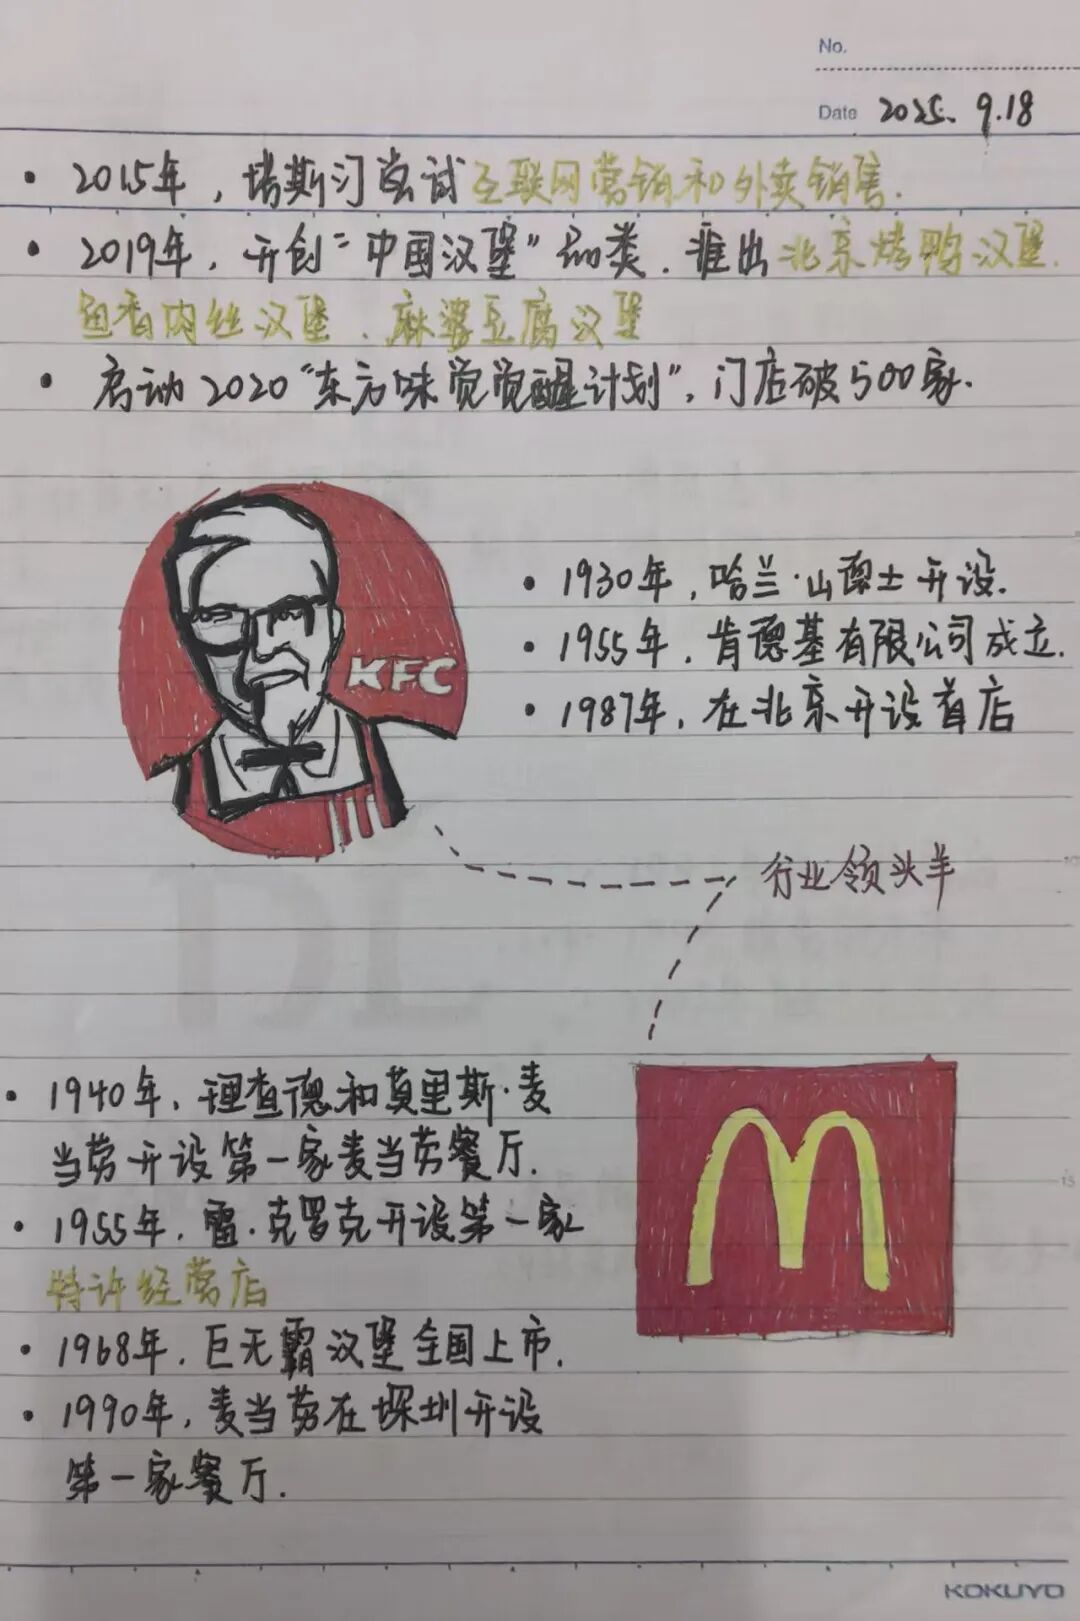 No.
Date 2025. 9.18
• 2015年，塔斯汀尝试互联网营销和外卖销售.
• 2019年，开创“中国汉堡”品类．推出北京烤鸭汉堡.
鱼香肉丝汉堡．麻婆豆腐汉堡
• 启动2020“东方味觉觉醒计划”，门店破500家.
KFC
• 1930年，哈兰·山德士开设.
• 1955年．肯德基有限公司成立.
• 1987年，在北京开设首店
行业领头羊
• 1940年．理查德和莫里斯·麦
当劳开设第一家麦当劳餐厅.
• 1955年．雷·克罗克开设第一家
特许经营店
• 1968年．巨无霸汉堡全国上市.
• 1990年，麦当劳在深圳开设
第一家餐厅.
KOKUYO